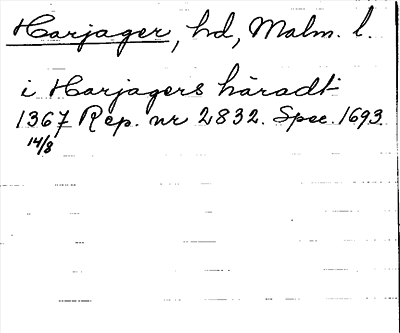 Harjager, hd, Malm. l.
i Harjagers häradt
1367 Rep. nr 2832. Spec. 1693.
14/8